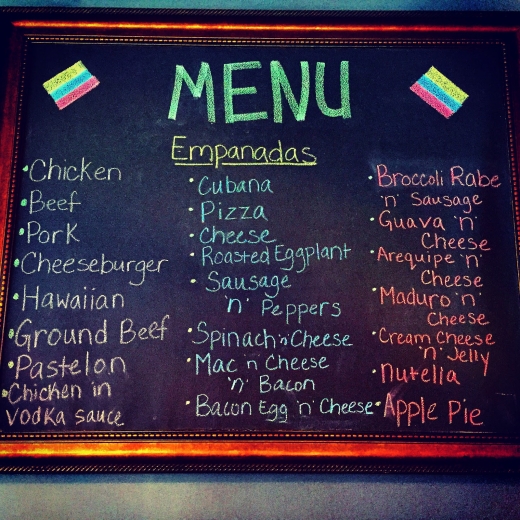 MENU
Empanadas
•Chicken
•Beef
•Pork
•Cheeseburger
•Hawaiian
•Ground Beef
•Pastelon
•Chicken in
Vodka sauce
•Cubana
•Pizza
•Cheese
•Roasted Eggplant
•Sausage
'n' Peppers
•Spinach 'n' Cheese
•Mac 'n Cheese
'n' Bacon
•Bacon Egg 'n' Cheese
•Broccoli Rabe
'n' Sausage
•Guava 'n'
Cheese
•Arequipe 'n'
Cheese
•Maduro 'n'
Cheese
•Cream Cheese
'n' Jelly
•Nutella
•Apple Pie